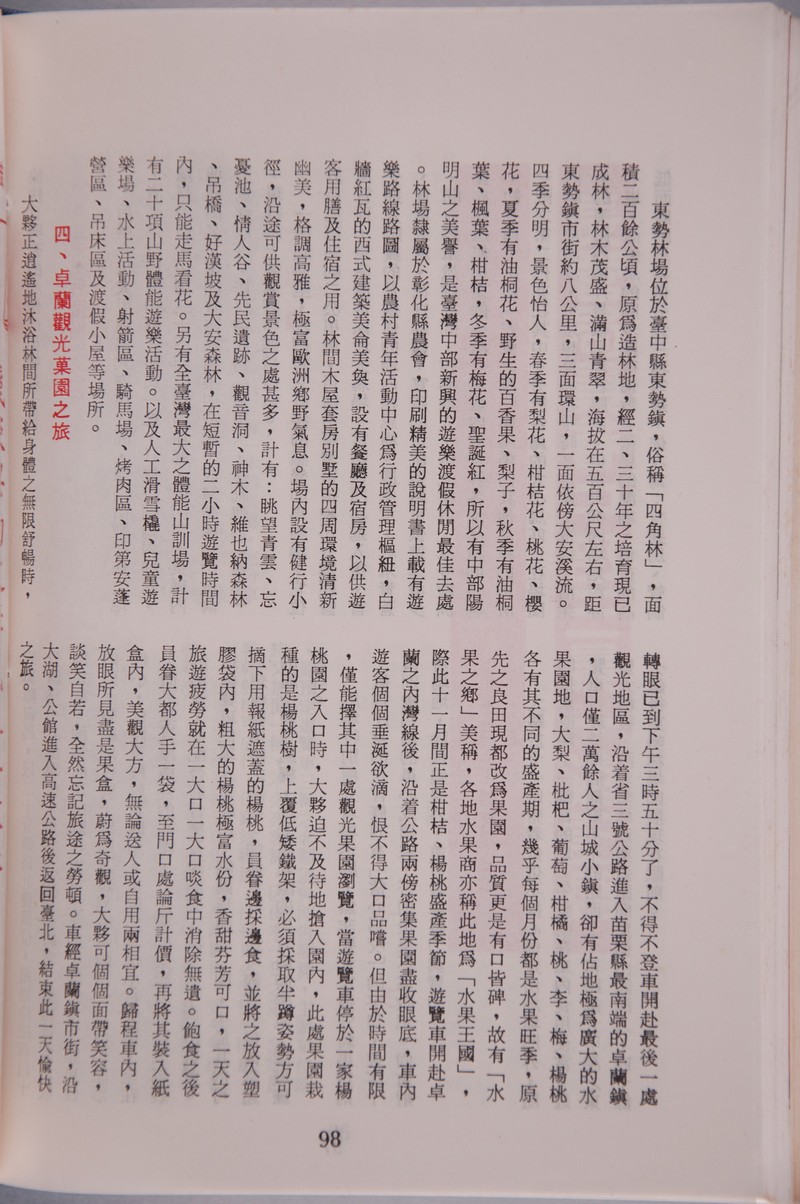 東勢林場位於臺中縣東勢鎮，俗稱「四角林」，面
積二百餘公頃，原爲造林地，經二、三十年之培育現已
成林，林木茂盛、滿山青翠，海拔在五百公尺左右，距
東勢鎮市街約八公里，三面環山，一面依傍大安溪流。
四季分明，景色怡人，春季有梨花、柑桔花、桃花、櫻
花，夏季有油桐花、野生的百香果、梨子，秋季有油桐
葉、楓葉、柑桔，冬季有梅花、聖誕紅，所以有中部陽
明山之美譽，是臺灣中部新興的遊樂渡假休閒最佳去處
。林場隸屬於彰化縣農會，印刷精美的說明書上載有遊
樂路線路圖，以農村青年活動中心爲行政管理樞紐，白
牆紅瓦的西式建築美侖美奐，設有餐廳及宿房，以供遊
客用膳及住宿之用。林間木屋套房別墅的四周環境清新
幽美，格調高雅，極富歐洲鄉野氣息。場內設有健行小
徑，沿途可供觀賞景色之處甚多，計有：眺望青雲、忘
憂池、情人谷、先民遺跡、觀音洞、神木、維也納森林
、吊橋、好漢坡及大安森林，在短暫的二小時遊覽時間
內，只能走馬看花。另有全臺灣最大之體能山訓場，計
有二十項山野體能遊樂活動。以及人工滑雪橇、兒童遊
樂場、水上活動、射箭區、騎馬場、烤肉區、印第安蓬
營區、吊床區及渡假小屋等場所。
四、卓蘭觀光菓園之旅
大夥正逍遙地沐浴林間所帶給身體之無限舒暢時，
轉眼已到下午三時五十分了，不得不登車開赴最後一處
觀光地區，沿着省三號公路進入苗栗縣最南端的卓蘭鎮
，人口僅二萬餘人之山城小鎮，卻有佔地極爲廣大的水
果園地，大梨、枇杷、葡萄、柑橘、桃、李、梅、楊桃
各有其不同的盛產期，幾乎每個月份都是水果旺季，原
先之良田現都改爲果園，品質更是有口皆碑，故有「水
果之鄉」美稱，各地水果商亦稱此地爲「水果王國」，
際此十一月間正是柑桔、楊桃盛產季節，遊覽車開赴卓
蘭之內灣線後，沿着公路兩傍密集果園盡收眼底，車內
遊客個個垂涎欲滴，恨不得大口品嚐。但由於時間有限
，僅能擇其中一處觀光果園瀏覽，當遊覽車停於一家楊
桃園之入口時，大夥迫不及待地搶入園內，此處果園栽
種的是楊桃樹，上覆低矮鐵架，必須採取半蹲姿勢方可
摘下用報紙遮蓋的楊桃，員眷邊採邊食，並將之放入塑
膠袋內，粗大的楊桃極富水份，香甜芬芳可口，一天之
旅遊疲勞就在一大口一大口啖食中消除無遺。飽食之後
員眷大都人手一袋，至門口處論斤計價，再將其裝入紙
盒內，美觀大方，無論送人或自用兩相宜。歸程車內，
放眼所見盡是果盒，蔚爲奇觀，大夥可個個面帶笑容，
談笑自若，全然忘記旅途之勞頓。車經卓蘭鎮市街，沿
大湖、公館進入高速公路後返回臺北，結束此一天愉快
之旅。
98